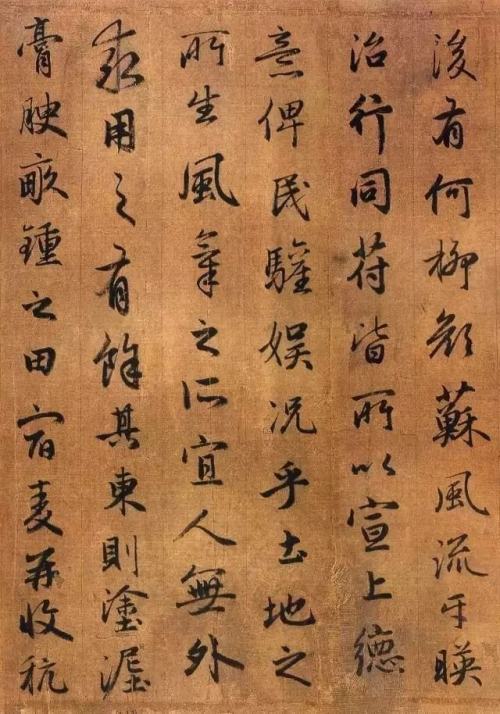 後有何柳顏蘇風流互暎
治行同苻皆所以宣上德
意俾民驩娱况乎土地之
所生風氣之所宜人無外
求用之有餘其東則塗泥
膏腴畝鍾之田宿麦再收秔